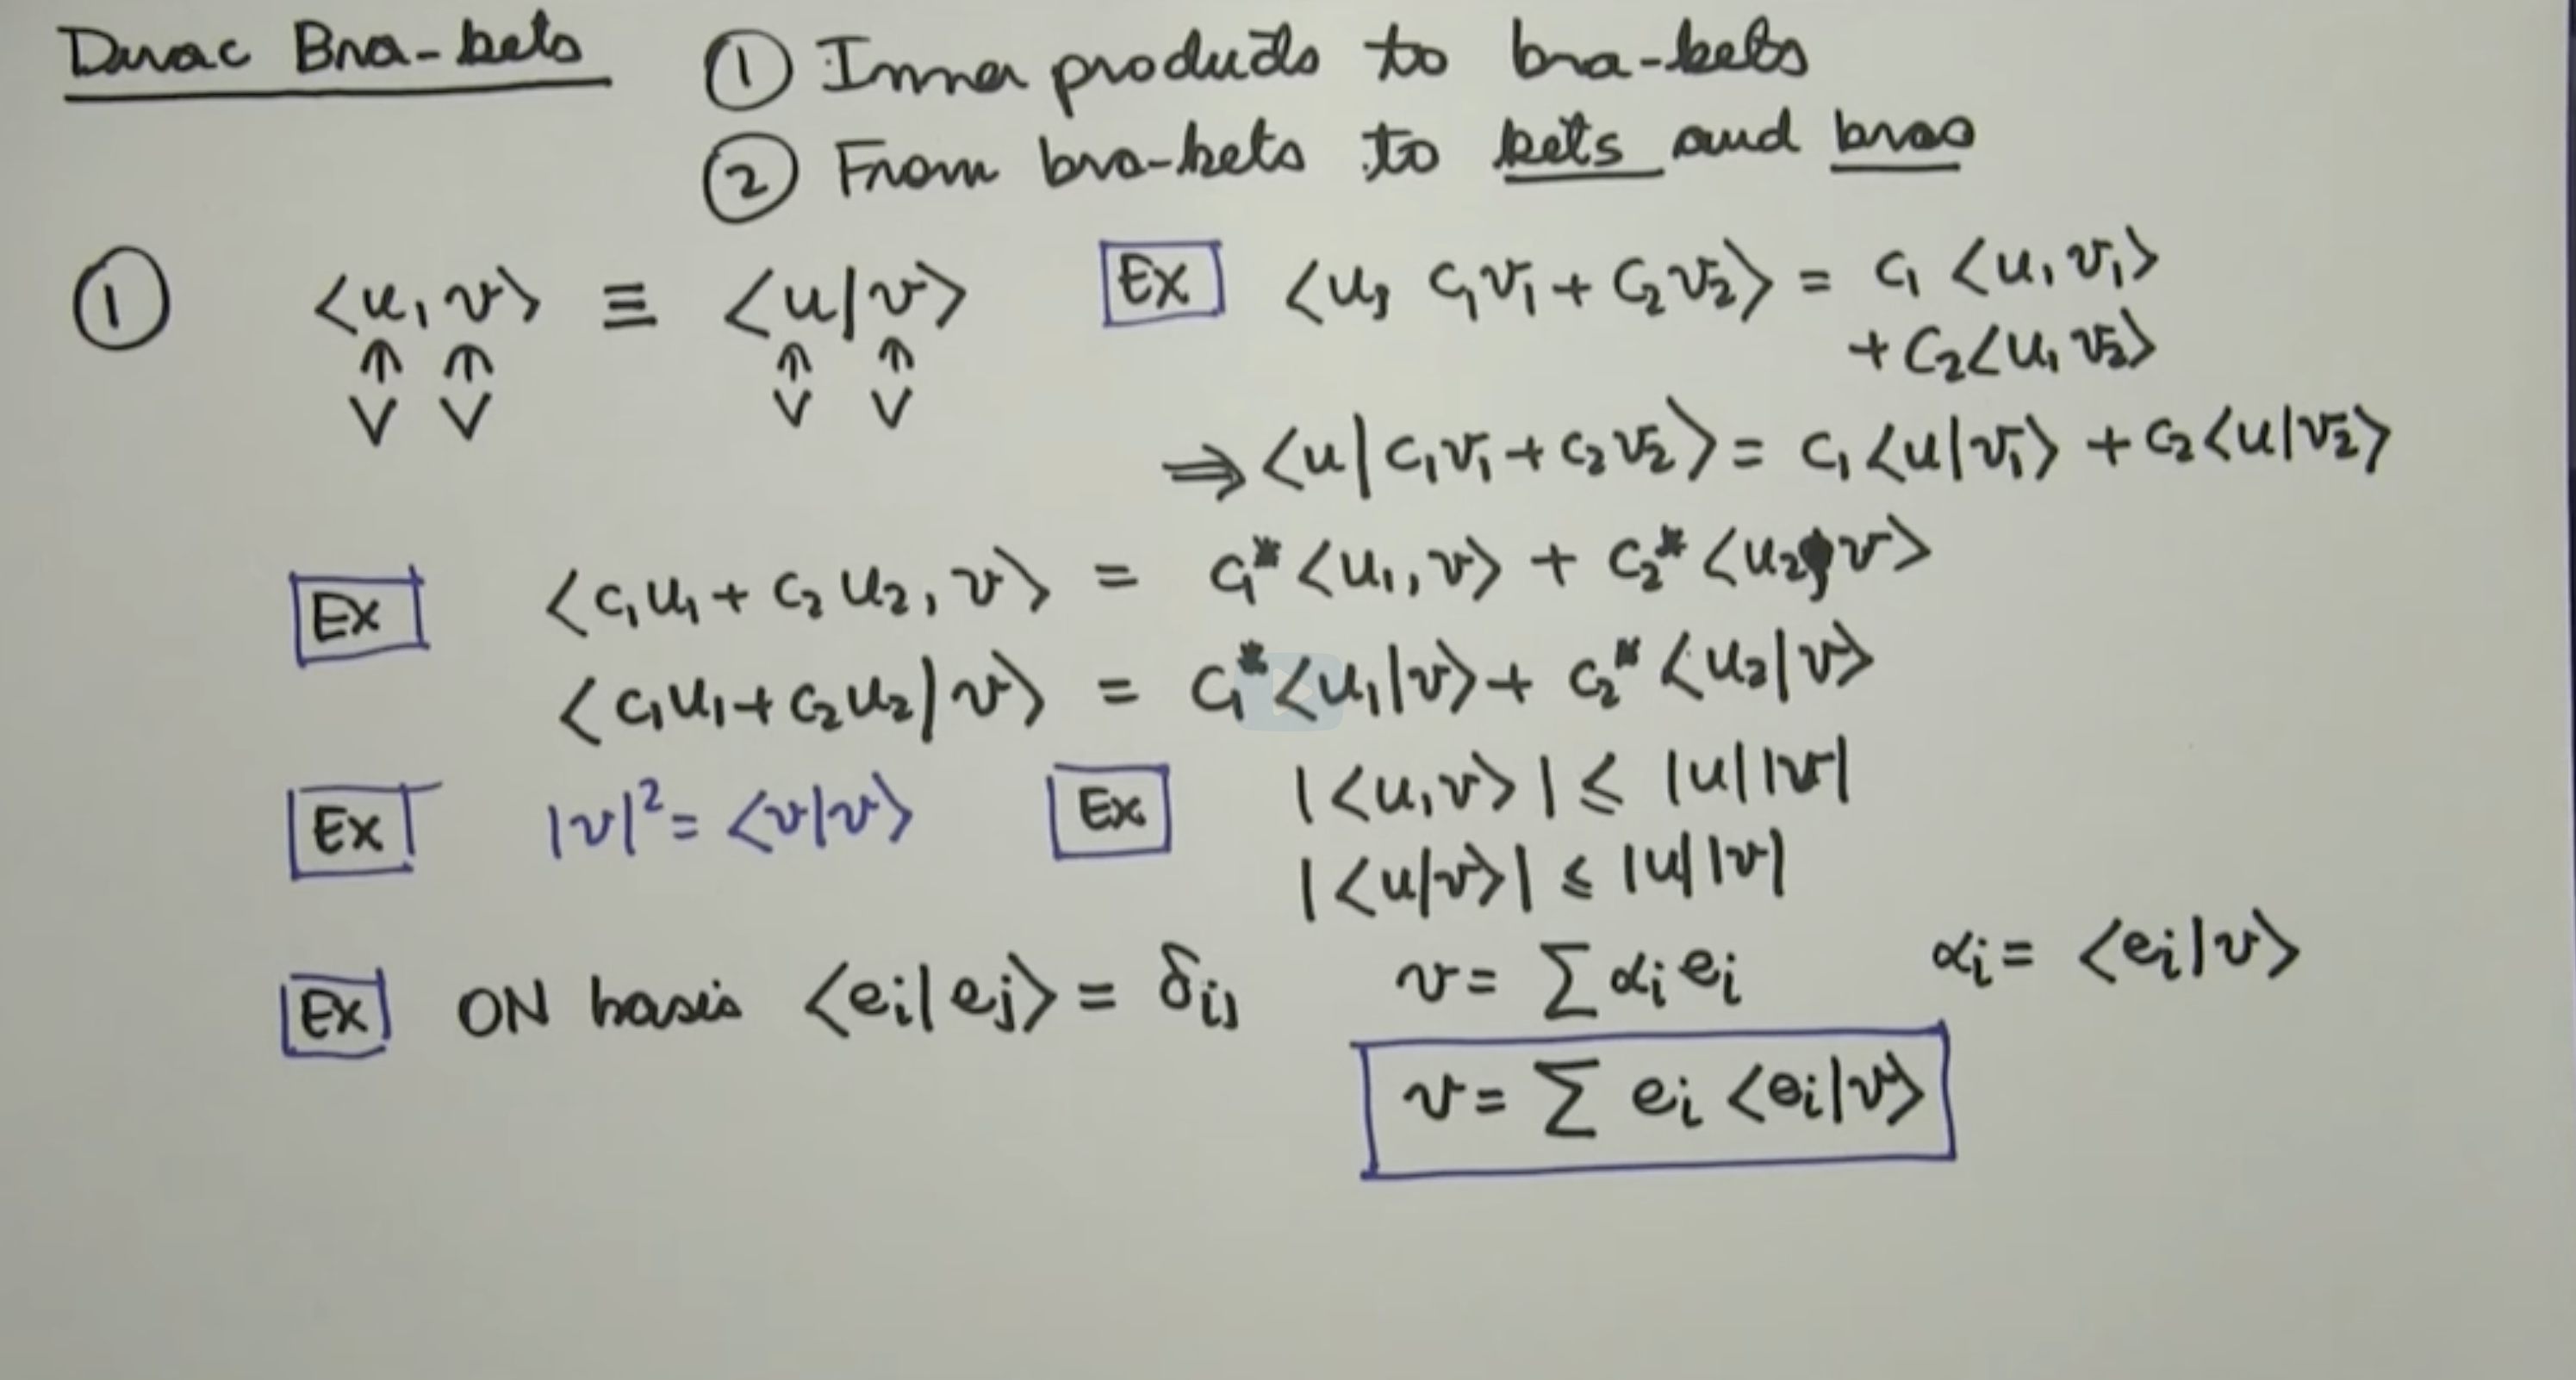 Dirac Bra-kets
① Inner products to bra-kets
② From bra-kets to kets and bras
① <u, v> ≡ <u|v>
↑ ↑ ↑ ↑
V V V V
Ex <u, c₁v₁ + c₂v₂> = c₁ <u, v₁>
+ c₂<u, v₂>
⇒ <u|c₁v₁ + c₂v₂> = c₁<u|v₁> + c₂<u|v₂>
Ex <c₁u₁ + c₂u₂, v> = c₁*<u₁, v> + c₂*<u₂, v>
<c₁u₁ + c₂u₂|v> = c₁*<u₁|v> + c₂*<u₂|v>
Ex |v|² = <v|v>
Ex |<u, v>| ≤ |u||v|
|<u|v>| ≤ |u||v|
Ex ON basis <eᵢ|eⱼ> = δᵢⱼ
v = ∑ αᵢ eᵢ αᵢ = <eᵢ|v>
v = ∑ eᵢ <eᵢ|v>